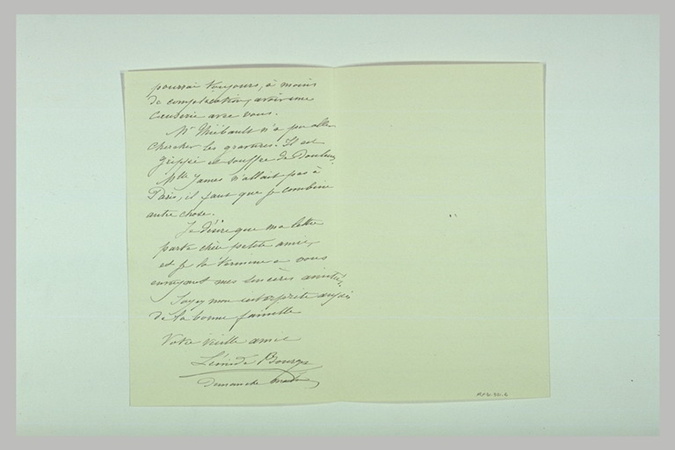 pourrai toujours, à moins
de complication, avoir une
causerie avec vous.
Mr Thibault n'a pu aller
chercher les gravures. Il est
grippé et souffre de Douleurs
Mlle James n'allait pas à
Paris, il faut que je combine
autre chose.
Je désire que ma lettre
parte chère petite amie,
et je la termine en vous
envoyant mes sincères amitiés
Soyez mon interprète auprès
de la bonne famille
Votre vieille amie
Dimanche matin